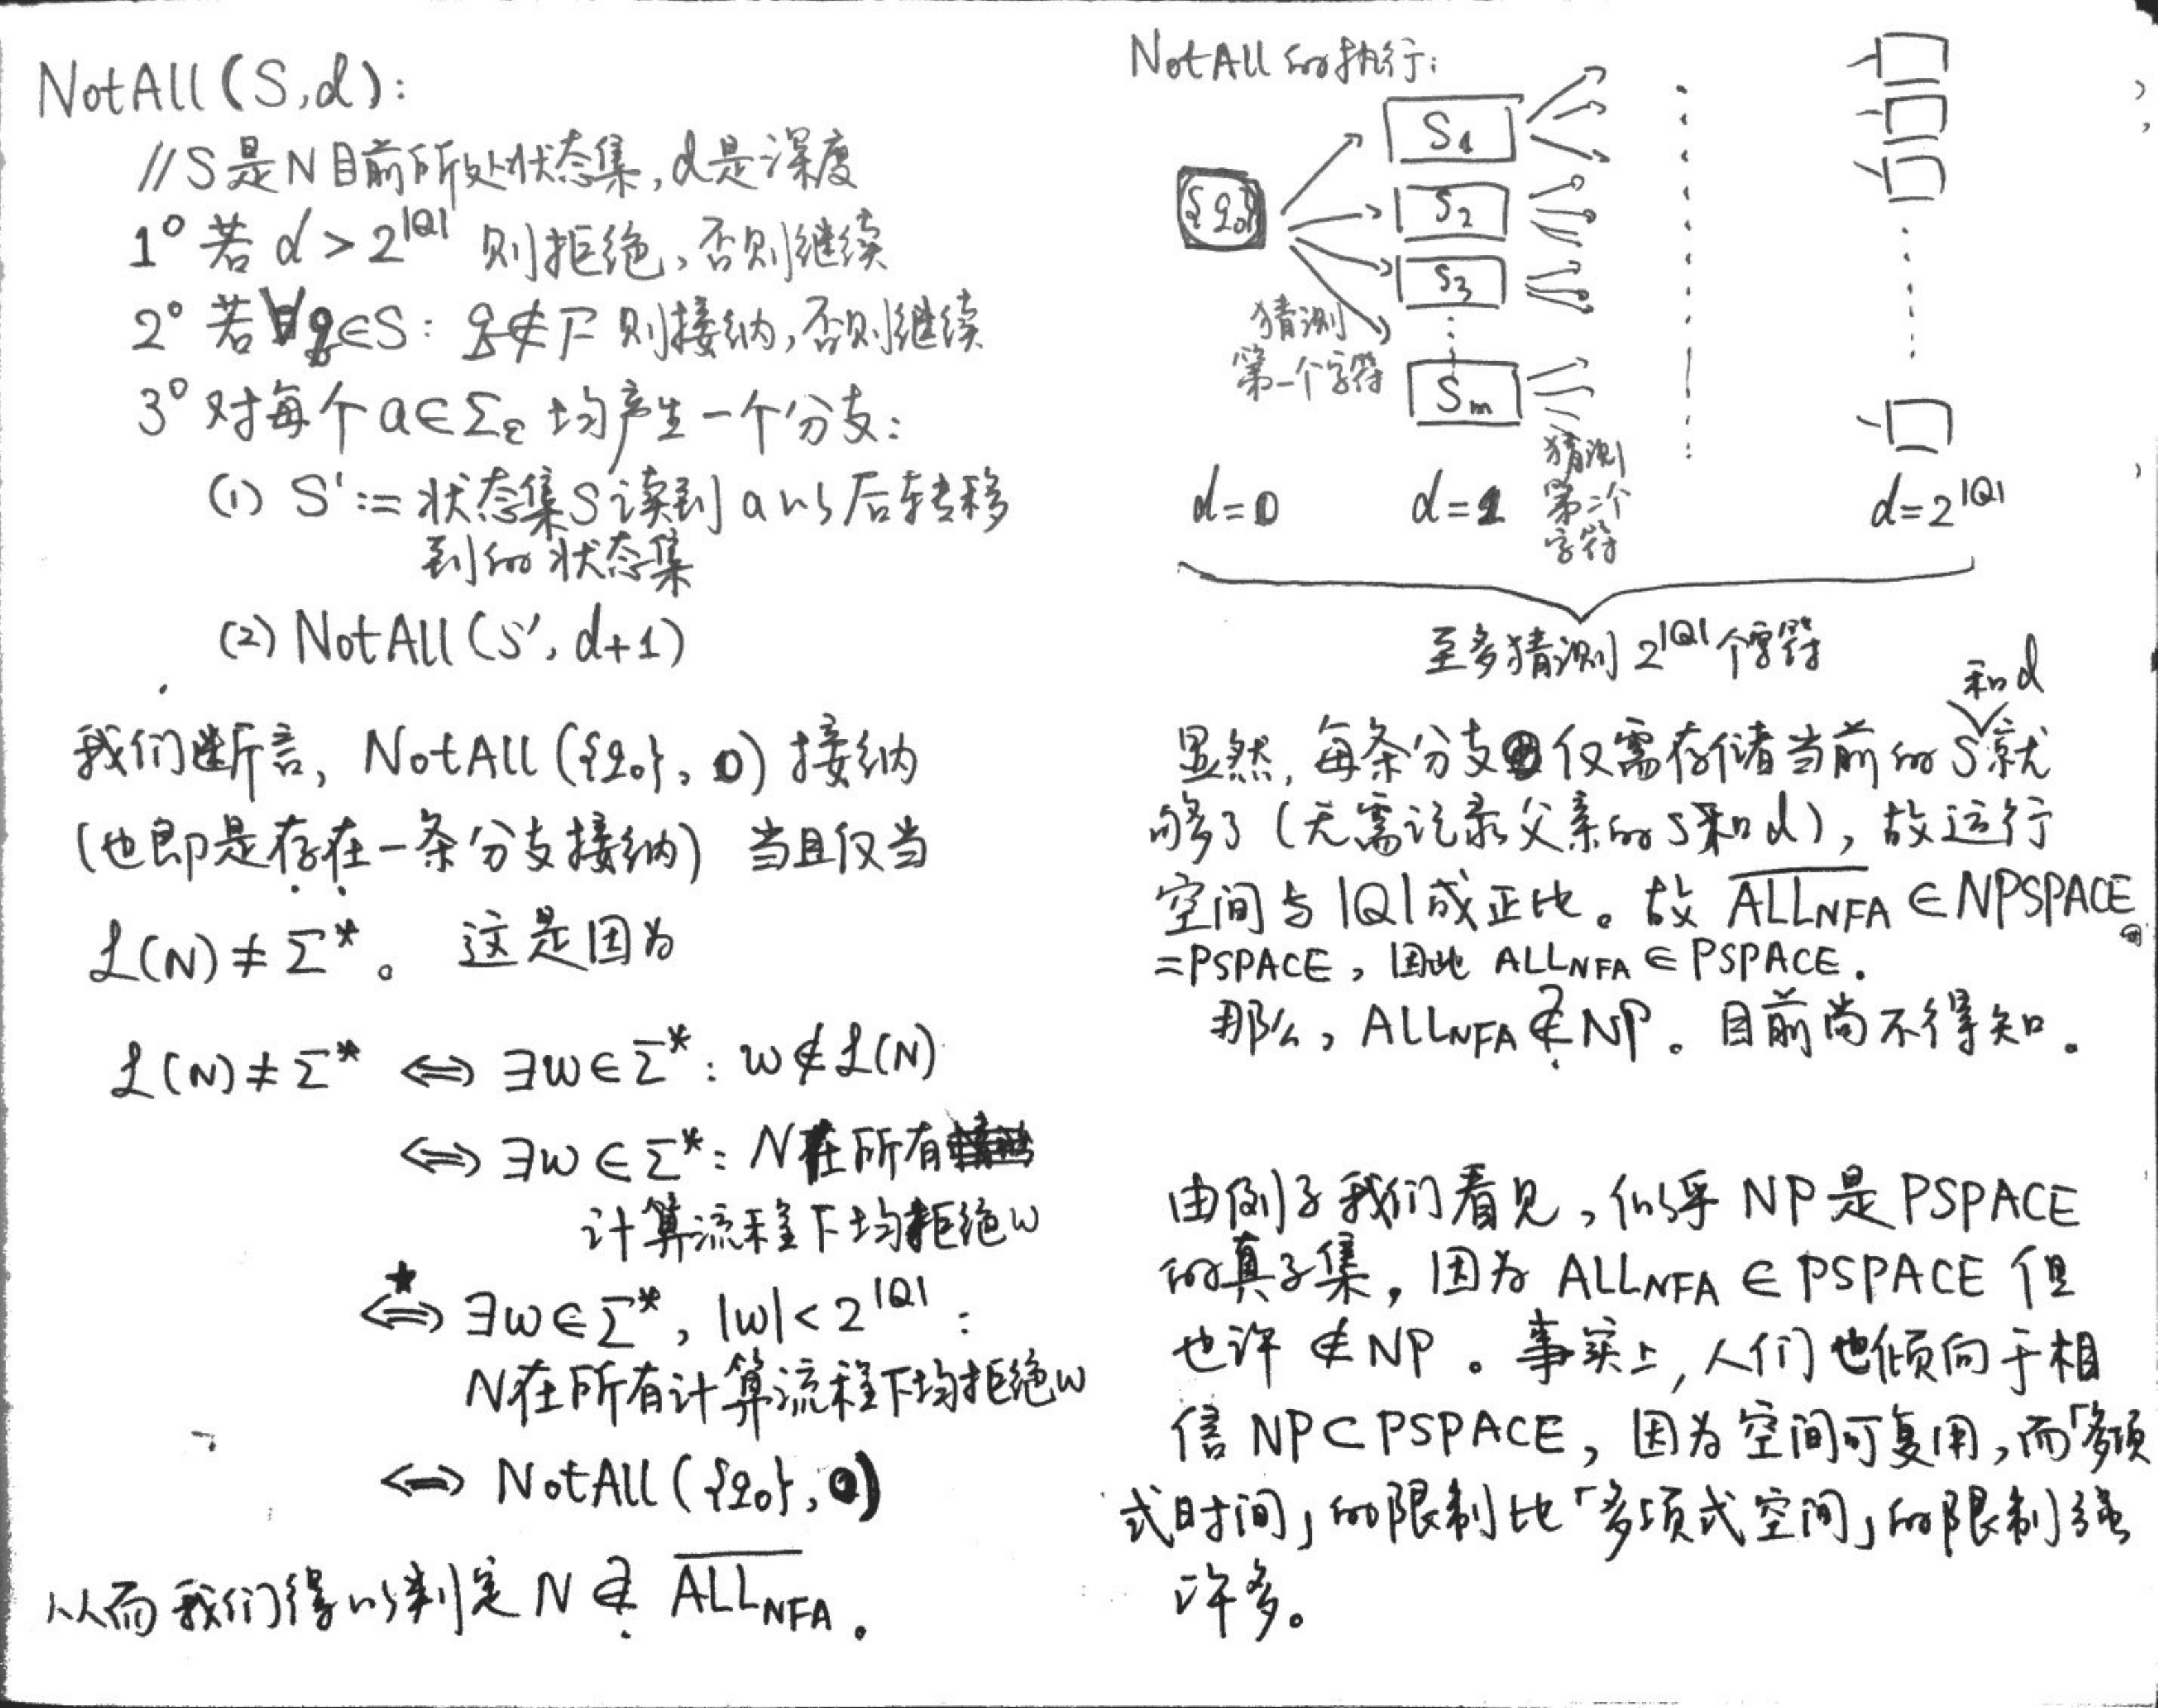 NotAll(S,d):
//S是N目前所处状态集,d是深度
1° 若 d > 2^|Q| 则拒绝,否则继续
2° 若∀q∈S: q∉F 则接纳,否则继续
3° 对每个 a∈Σε 均产生一个分支:
(1) S' := 状态集S读到a以后转移
到的状态集
(2) NotAll(S', d+1)
我们断言, NotAll({q₀}, 0) 接纳
(也即是存在一条分支接纳) 当且仅当
ℒ(N) ≠ Σ*。 这是因为
ℒ(N) ≠ Σ* ⟺ ∃w∈Σ*: w∉ℒ(N)
⟺ ∃w∈Σ*: N在所有
计算流程下均拒绝w
★
⟺ ∃w∈Σ*, |w|<2^|Q| :
N在所有计算流程下均拒绝w
⟺ NotAll({q₀}, 0)
从而我们得以判定 N ∈? \overline{ALL_NFA}。
NotAll的执行:
{q₀}
S1
S2
S3
Sm
猜测
第一个字符
猜测
第二个
字符
d=0 d=1 d=2^|Q|
至多猜测 2^|Q| 个字符
和d
显然, 每条分支仅需存储当前的S就
够了 (无需记录父亲的S和d), 故运行
空间与|Q|成正比。故 \overline{ALL_NFA} ∈ NPSPACE
=PSPACE, 因此 ALL_NFA ∈ PSPACE.
那么, ALL_NFA ∉? NP。目前尚不得知.
由例子我们看见, 似乎 NP 是 PSPACE
的真子集, 因为 ALL_NFA ∈ PSPACE 但
也许 ∉ NP 。事实上, 人们也倾向于相
信 NP⊂PSPACE, 因为空间可复用, 而「多项
式时间」的限制比「多项式空间」的限制强
许多。